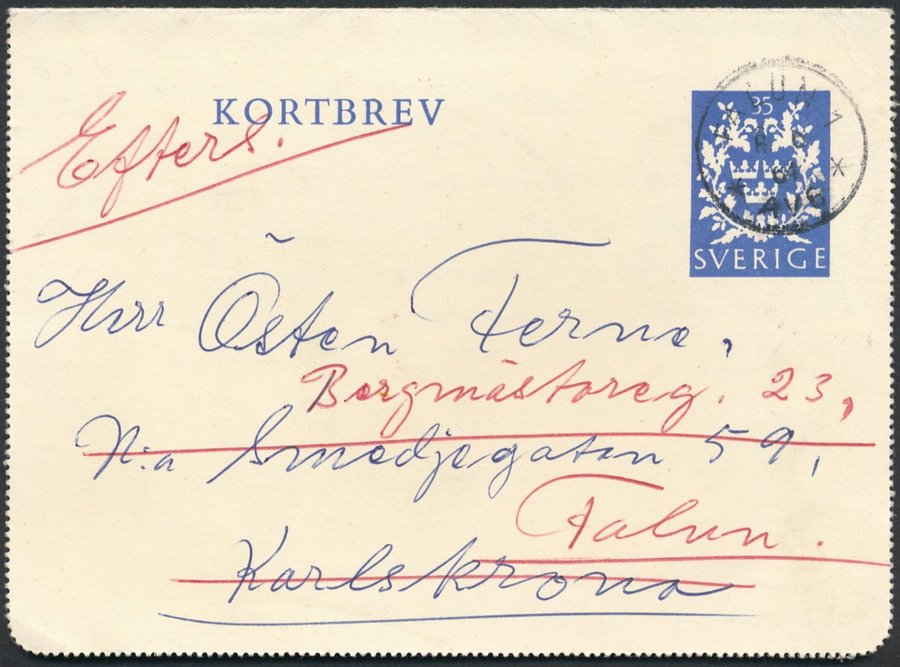 KORTBREV
Efterl.
35
SVERIGE
FALUN 1
8 6
61
AVG
Herr Östen Ferne,
Bergmästareg. 23,
N:a Smedjegatan 59,
Falun.
Karlskrona